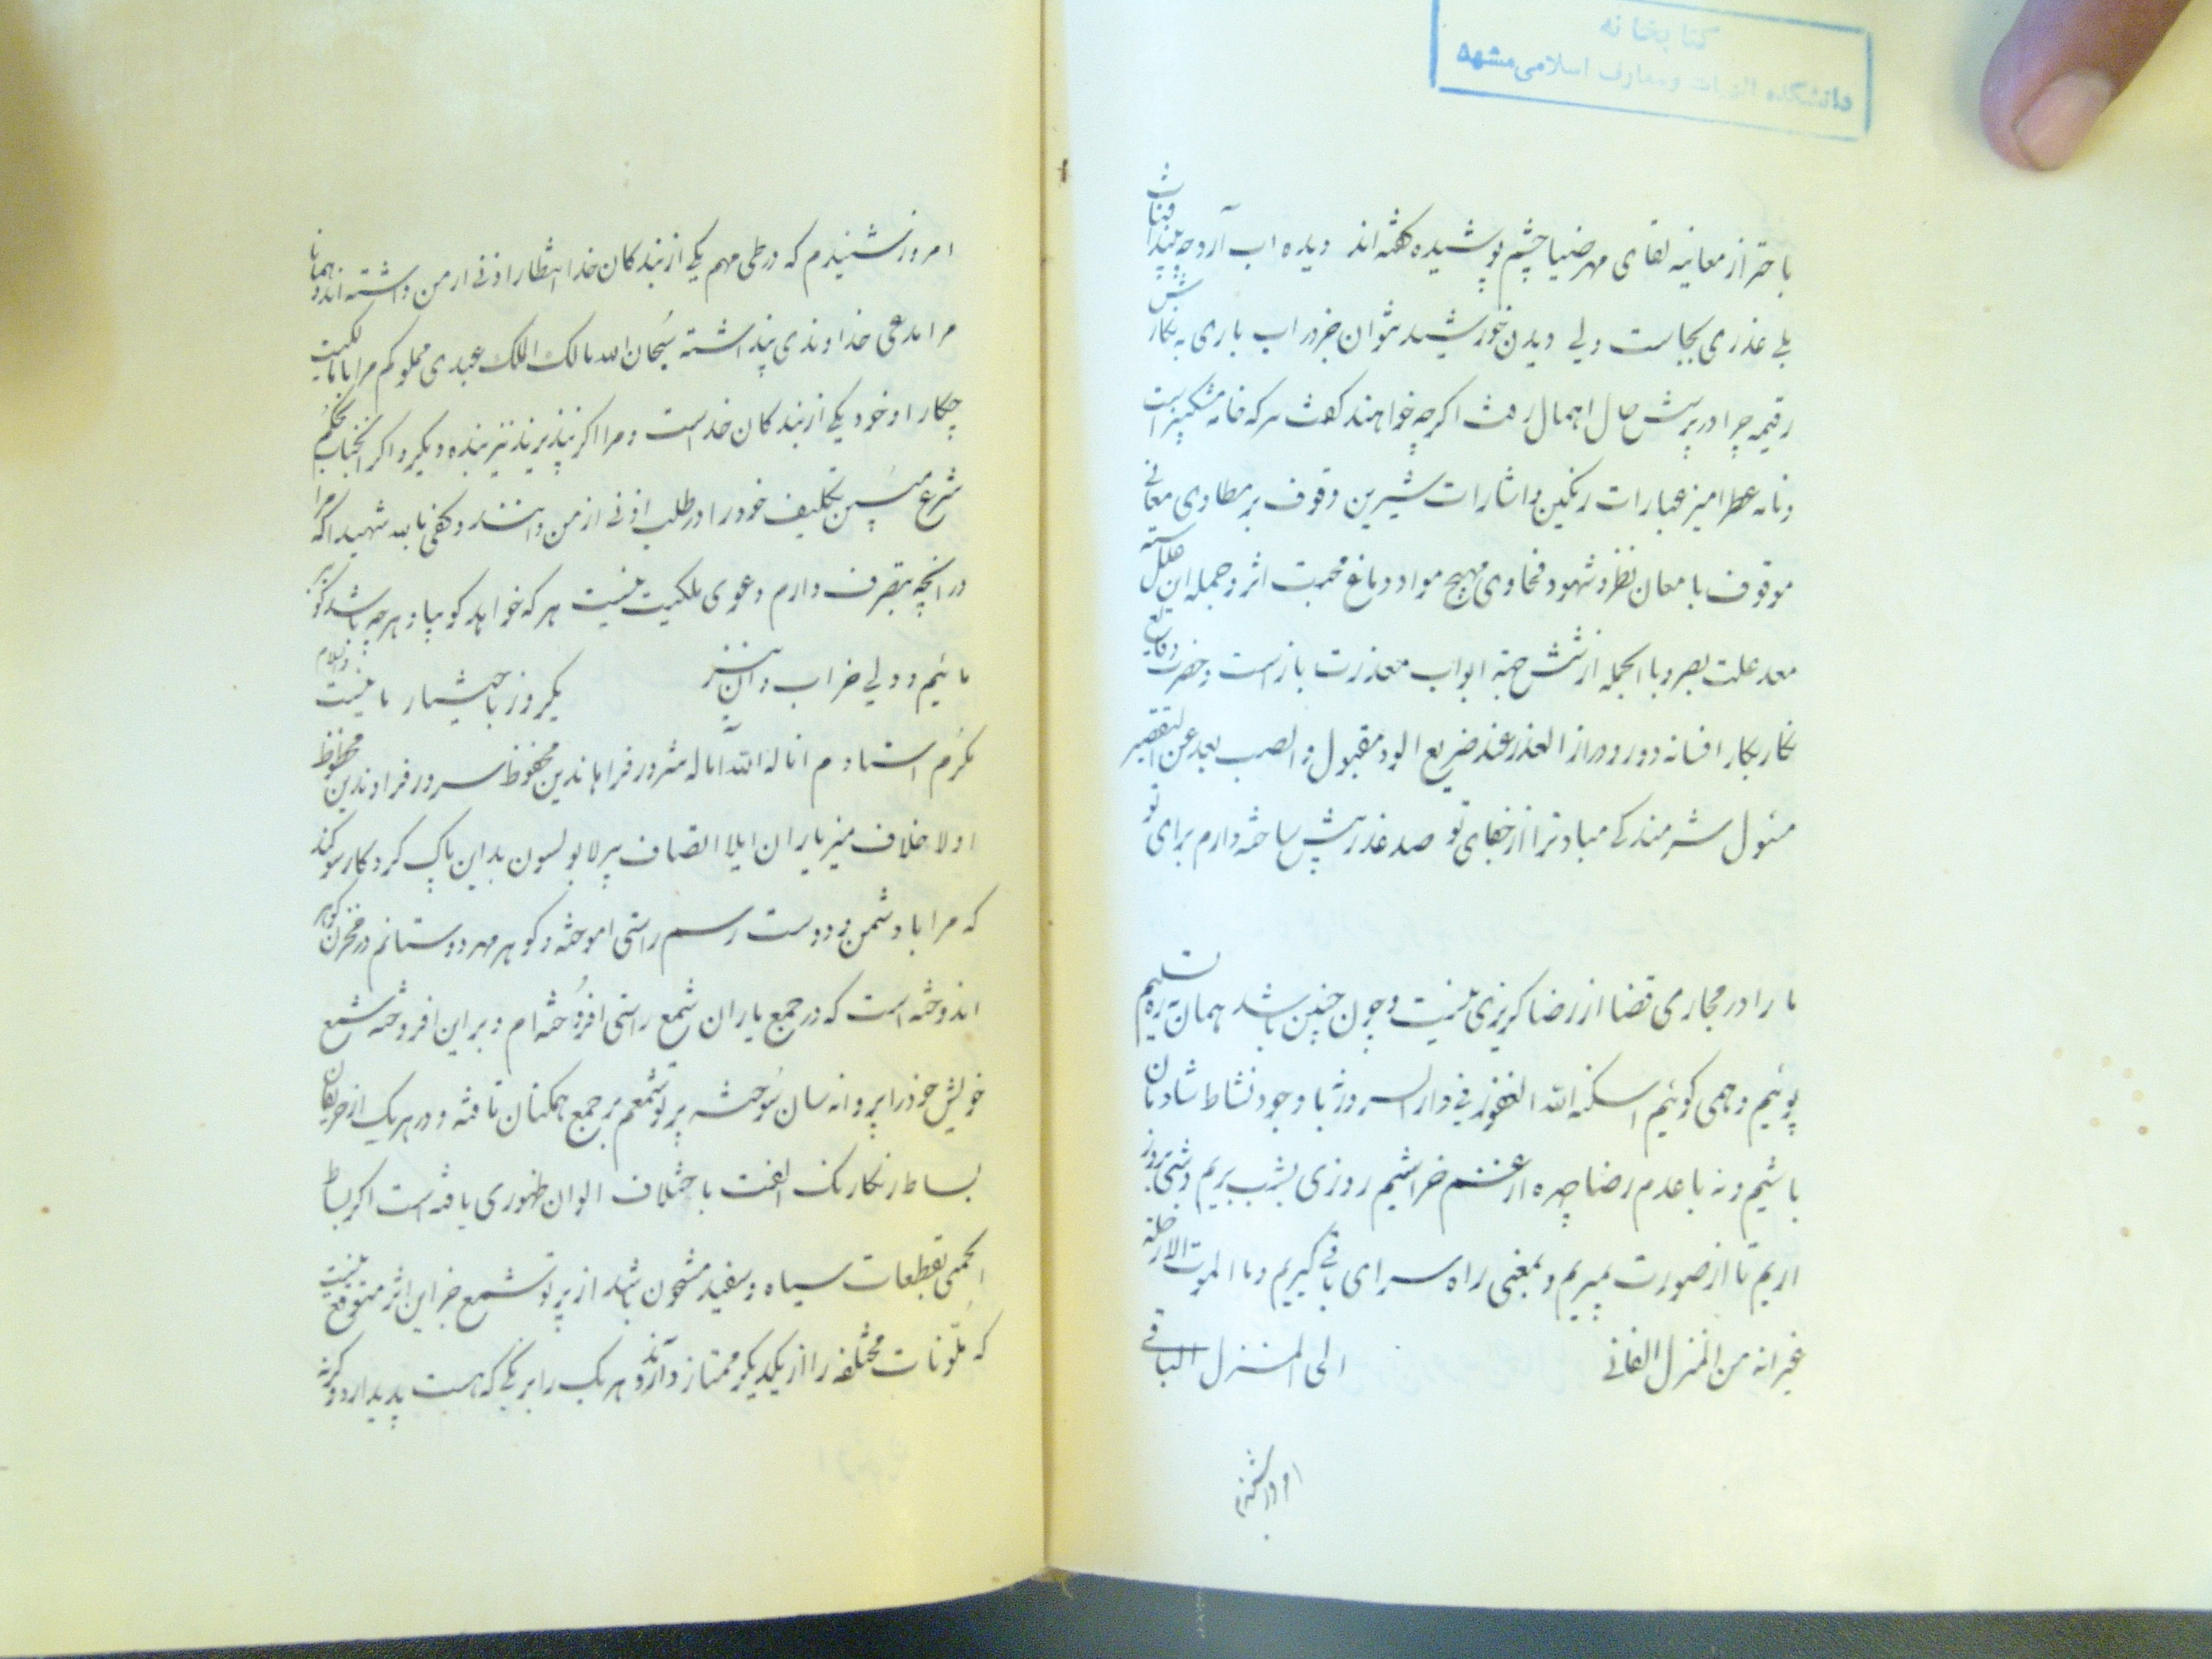 کتابخانه
دانشکده الهیات و معارف اسلامی مشهد
با حتر از معاینه لقای مهر ضیا چشم پوشیده گفته اند دیده اب آرد چو بیند آفتاب
بلے عذری بجاست ولی دیدن خورشید نتوان جز در اب باری به نکارش
رقیمه چرا در پرسش حال اهمال رفت اکرچه خواهند کفت سر که خامه مشکبیز است
ونامه عطرامیز عبارات رنکین و اشارات شیرین وقوف بر مطاوی معانی
موقوف بامعان نظر و شهود فحاوی مهیج مواد دماغ محبت اثر و جمله این
معد علت بصر و بالجمله از شش جهة ابواب معذرت بازست و حضرت وقایع
نکار بکار افسانه دور و دراز العذر عند ضریع الود مقبول والصب بعد عن التقصیر
مسئول شرمندکی مباد ترا از جفای تو صد عذر پیش ساخته دارم برای تو
ما را در مجاری قضا از رضا کریزی نیست و چون چنین باشد همان به ره تسلیم
پوئیم و همی کوئیم اسکنه الله الغفور فی دار السرور تا با وجود نشاط شادمان
باشیم و نه با عدم رضا چهره از غم خراشیم روزی بشب بریم و شبی بروز
اریم تا از صورت بمیریم و بمعنی راه سرای باقی گیریم وما الموت الا رحلة
غیر انه من المنزل الفانی الی المنزل الباقی
امروز شنیدم
امروز شنیدم که در طی مهم یکی از بندکان خدا انتظار اذنی از من داشته اند و همانا
مرا مدعی خداوندی پنداشته سبحان الله مالک الملک عبدی مملوکم مرا با مالکیت
چکار او خود یکی از بندکان خداست و مرا اکر بپذیرند نیز بنده دیکر و اکر انجناب بحکم
شرع مبین تکلیف خود را در طلب اذنی از من دانند و کفی بالله شهیدا که مرا
در انچه بتصرف دارم دعوی ملکیت نیست هر که خواهد کو بیا و هر چه باشد کو ببر
مائیم و دلی خراب و ان نیز یکروز باختیار ما نیست والسلام
مکرم استادم اناله الله آماله
اولا خلاف میز یاران ایلا انصاف بدین پاک کردکار سوکند
که مرا با دشمن و دوست رسم راستی اموخته و کوهر مهر دوستانم در مخزن
اندوخته است که در جمع یاران شمع راستی افروخته ام و بر این افروخته شمع
خویش خود را پروانه سان سوخته پرتو شمعم بر جمع همکنان تافته و در هر یک از حریفان
بساط رنکارنک الفت باختلاف الوان ظهوری یافته است اکر بساط
انجمنی بقطعات سیاه و سفید مشحون باشد از پرتو شمع جز این اثر متوقع نیست
که ملونات مختلفه را از یکدیکر ممتاز دارد و هر یک را برنکی که هست پدید ارد و کرنه